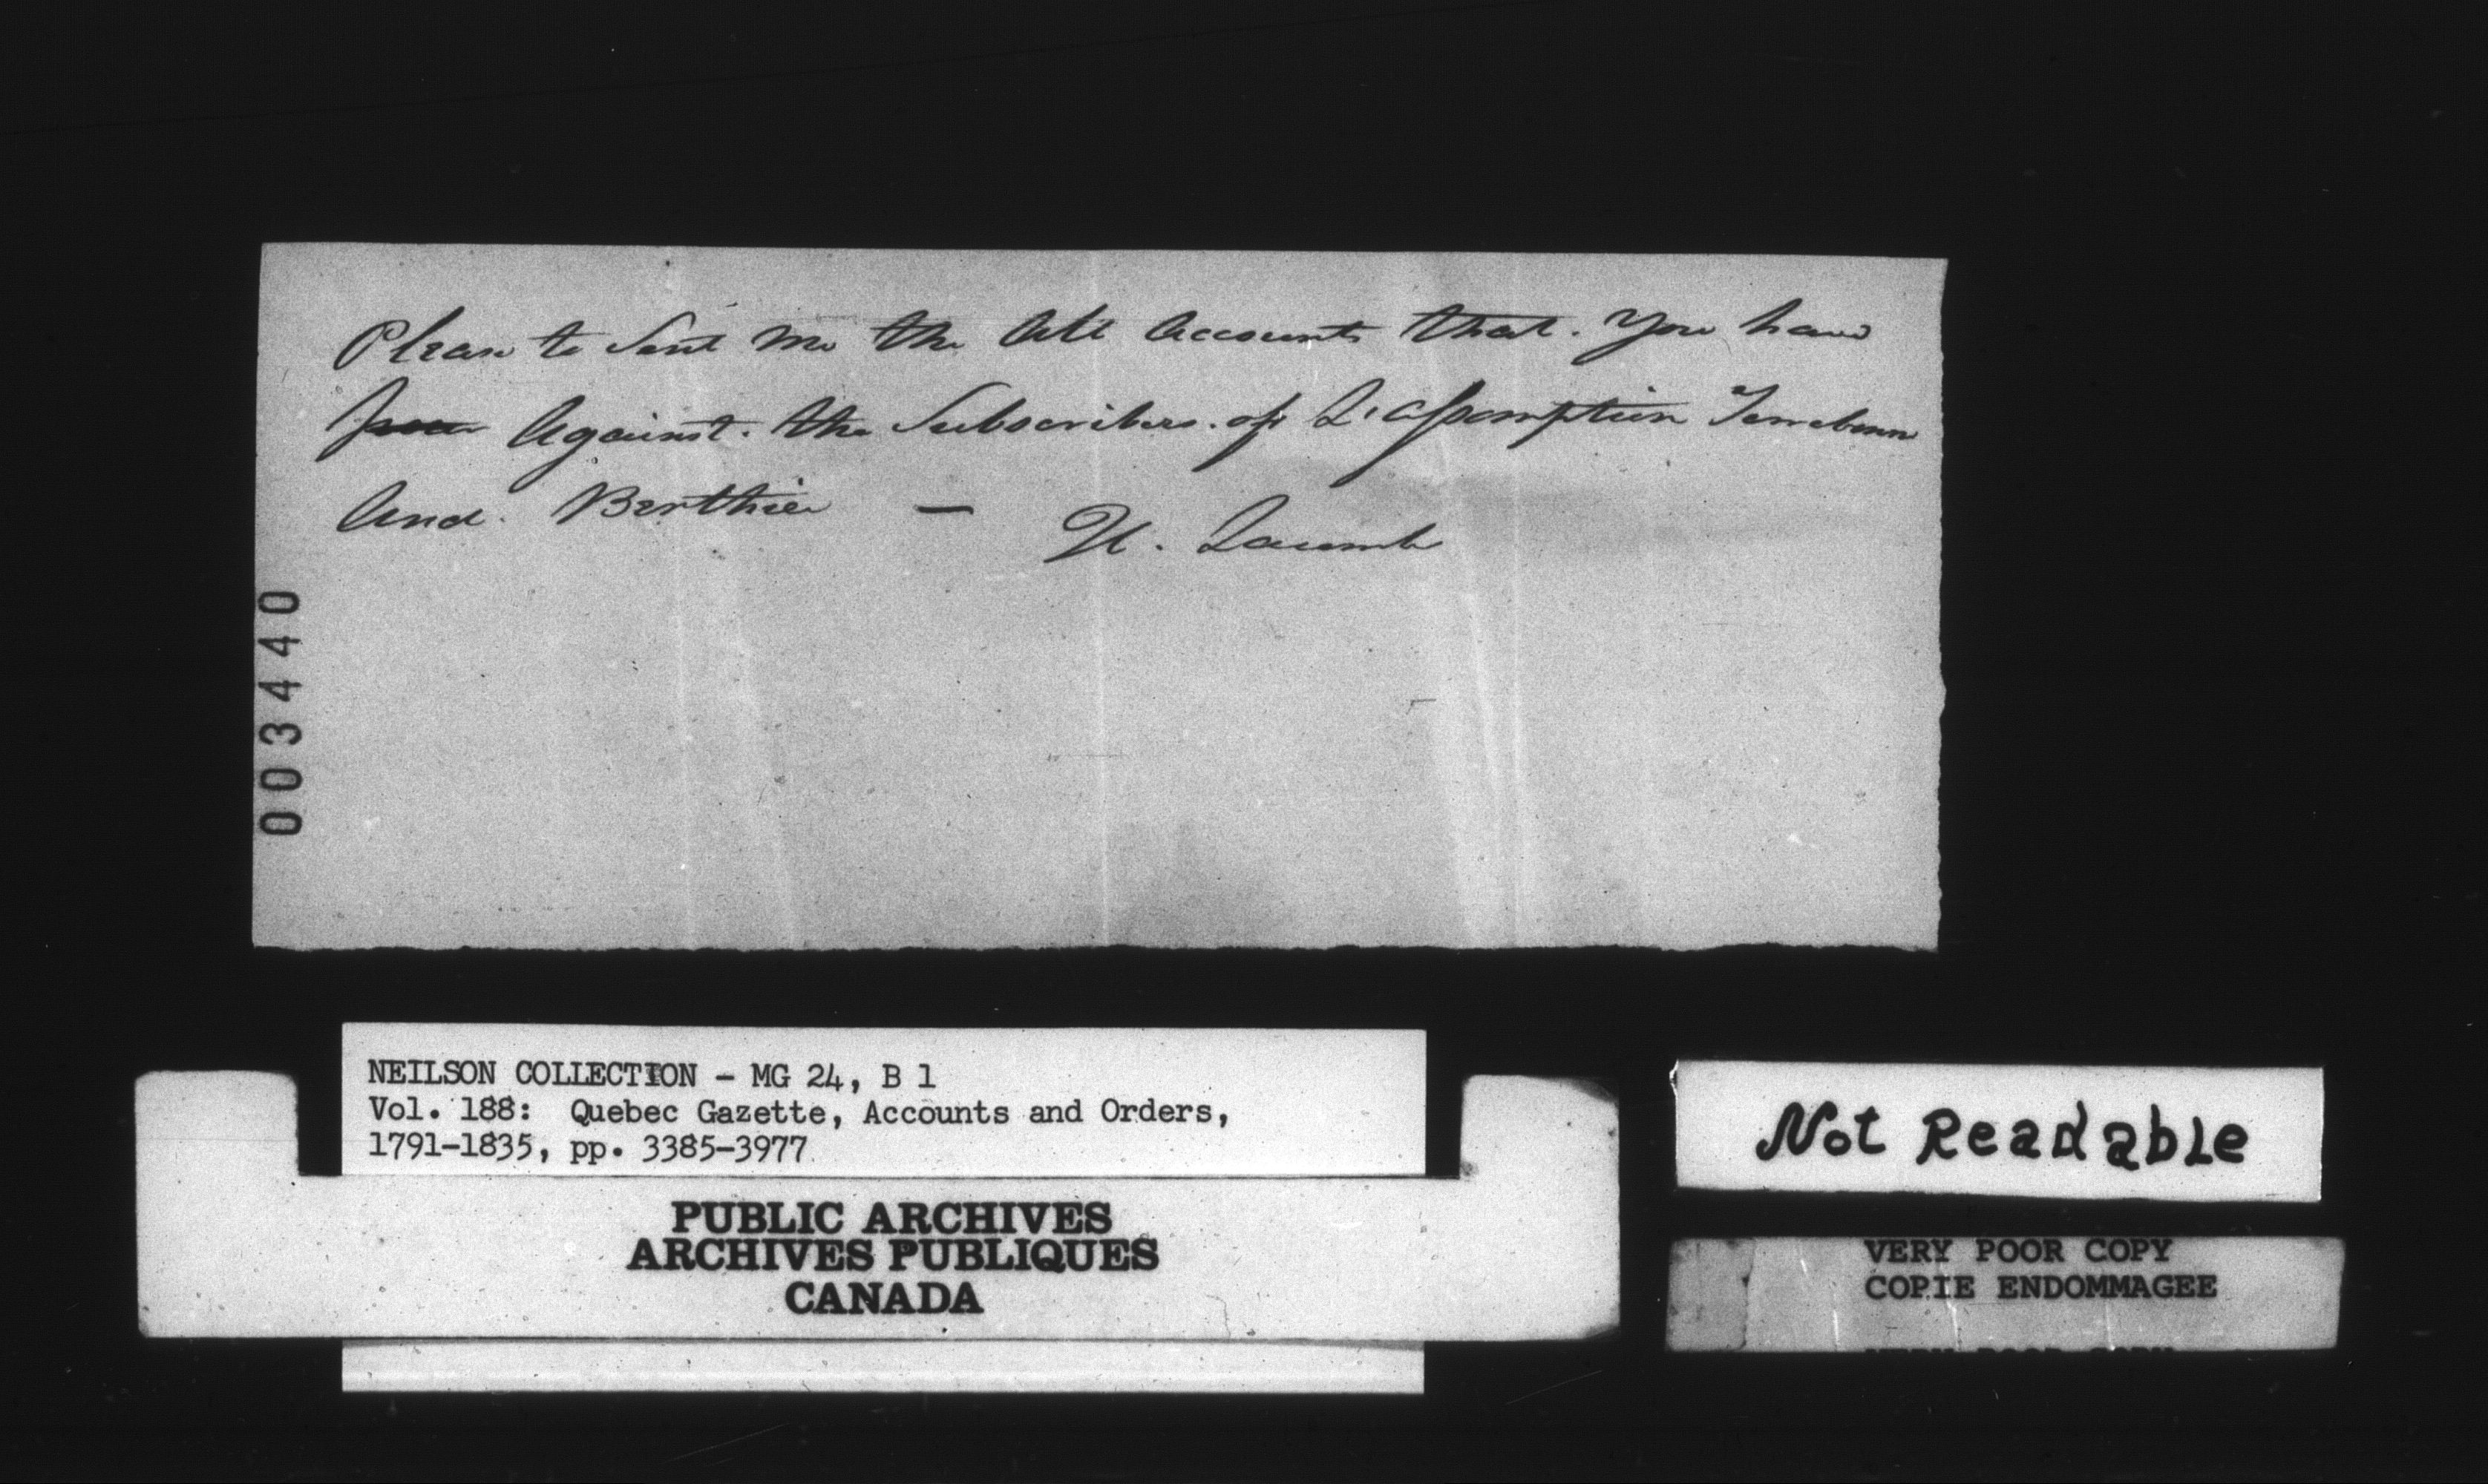 Please to Sent me the All Accounts that. You have
Against. the Subscribers. of L'assomption Terrebonne
And. Berthier —
U. Lacomb
003440
NEILSON COLLECTION - MG 24, B 1
Vol. 188: Quebec Gazette, Accounts and Orders,
1791-1835, pp. 3385-3977
PUBLIC ARCHIVES
ARCHIVES PUBLIQUES
CANADA
Not Readable
VERY POOR COPY
COPIE ENDOMMAGEE